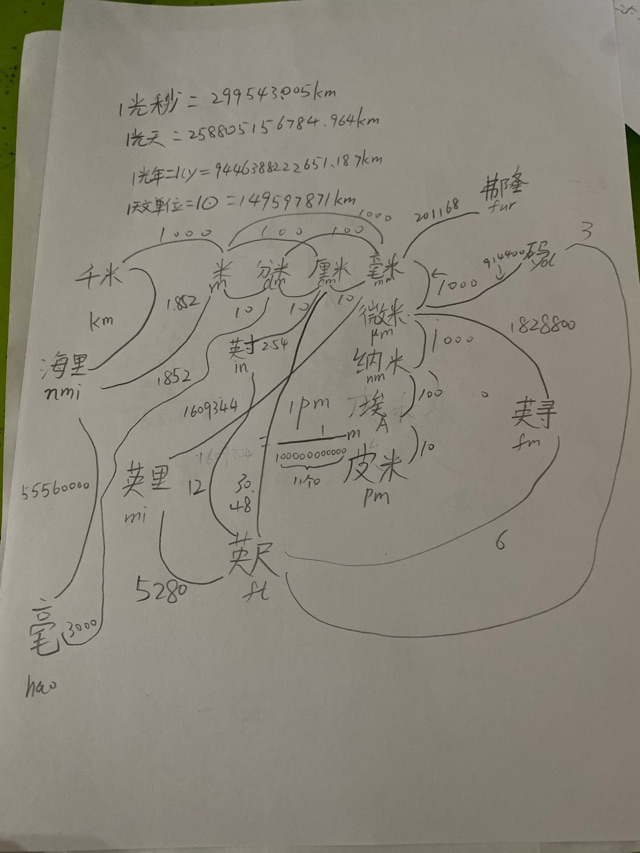 1光秒=299543.005km
1光天=258805156784.964km
1光年=1ly=9446388222651.187km
1天文单位=1⊙=149597871km
1000 100 1000 100 201168 弗隆
fur
3
千米 米 分米 厘米 毫米 914400 码
km m dm cm mm 1000 yd
1852 10 10 10 微米
μm 1828800
海里 1852 英寸 254 纳米 1000
nmi in nm
1609344 1pm 埃 100 0 英寻
1609344 = 1 m A fm
100000000000 皮米 10
11个 pm
55560000 英里 12 30.48
mi
英尺 6
5280 ft
毫 3000
hao